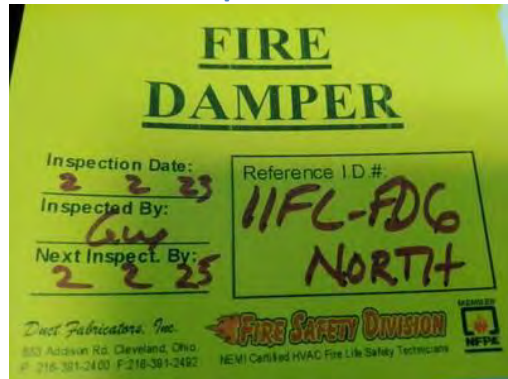 FIRE
DAMPER
Inspection Date:
2 2 23
Inspected By:
Guy
Next Inspect. By:
2 2 25
Reference I.D.#:
11FL-FD6
NORTH
Duct Fabricators, Inc.
883 Addison Rd. Cleveland, Ohio,
P: 216-391-2400 F:216-391-2492
FIRE SAFETY DIVISION
NEMI Certified HVAC Fire Life Safety Technicians
MEMBER
NFPA